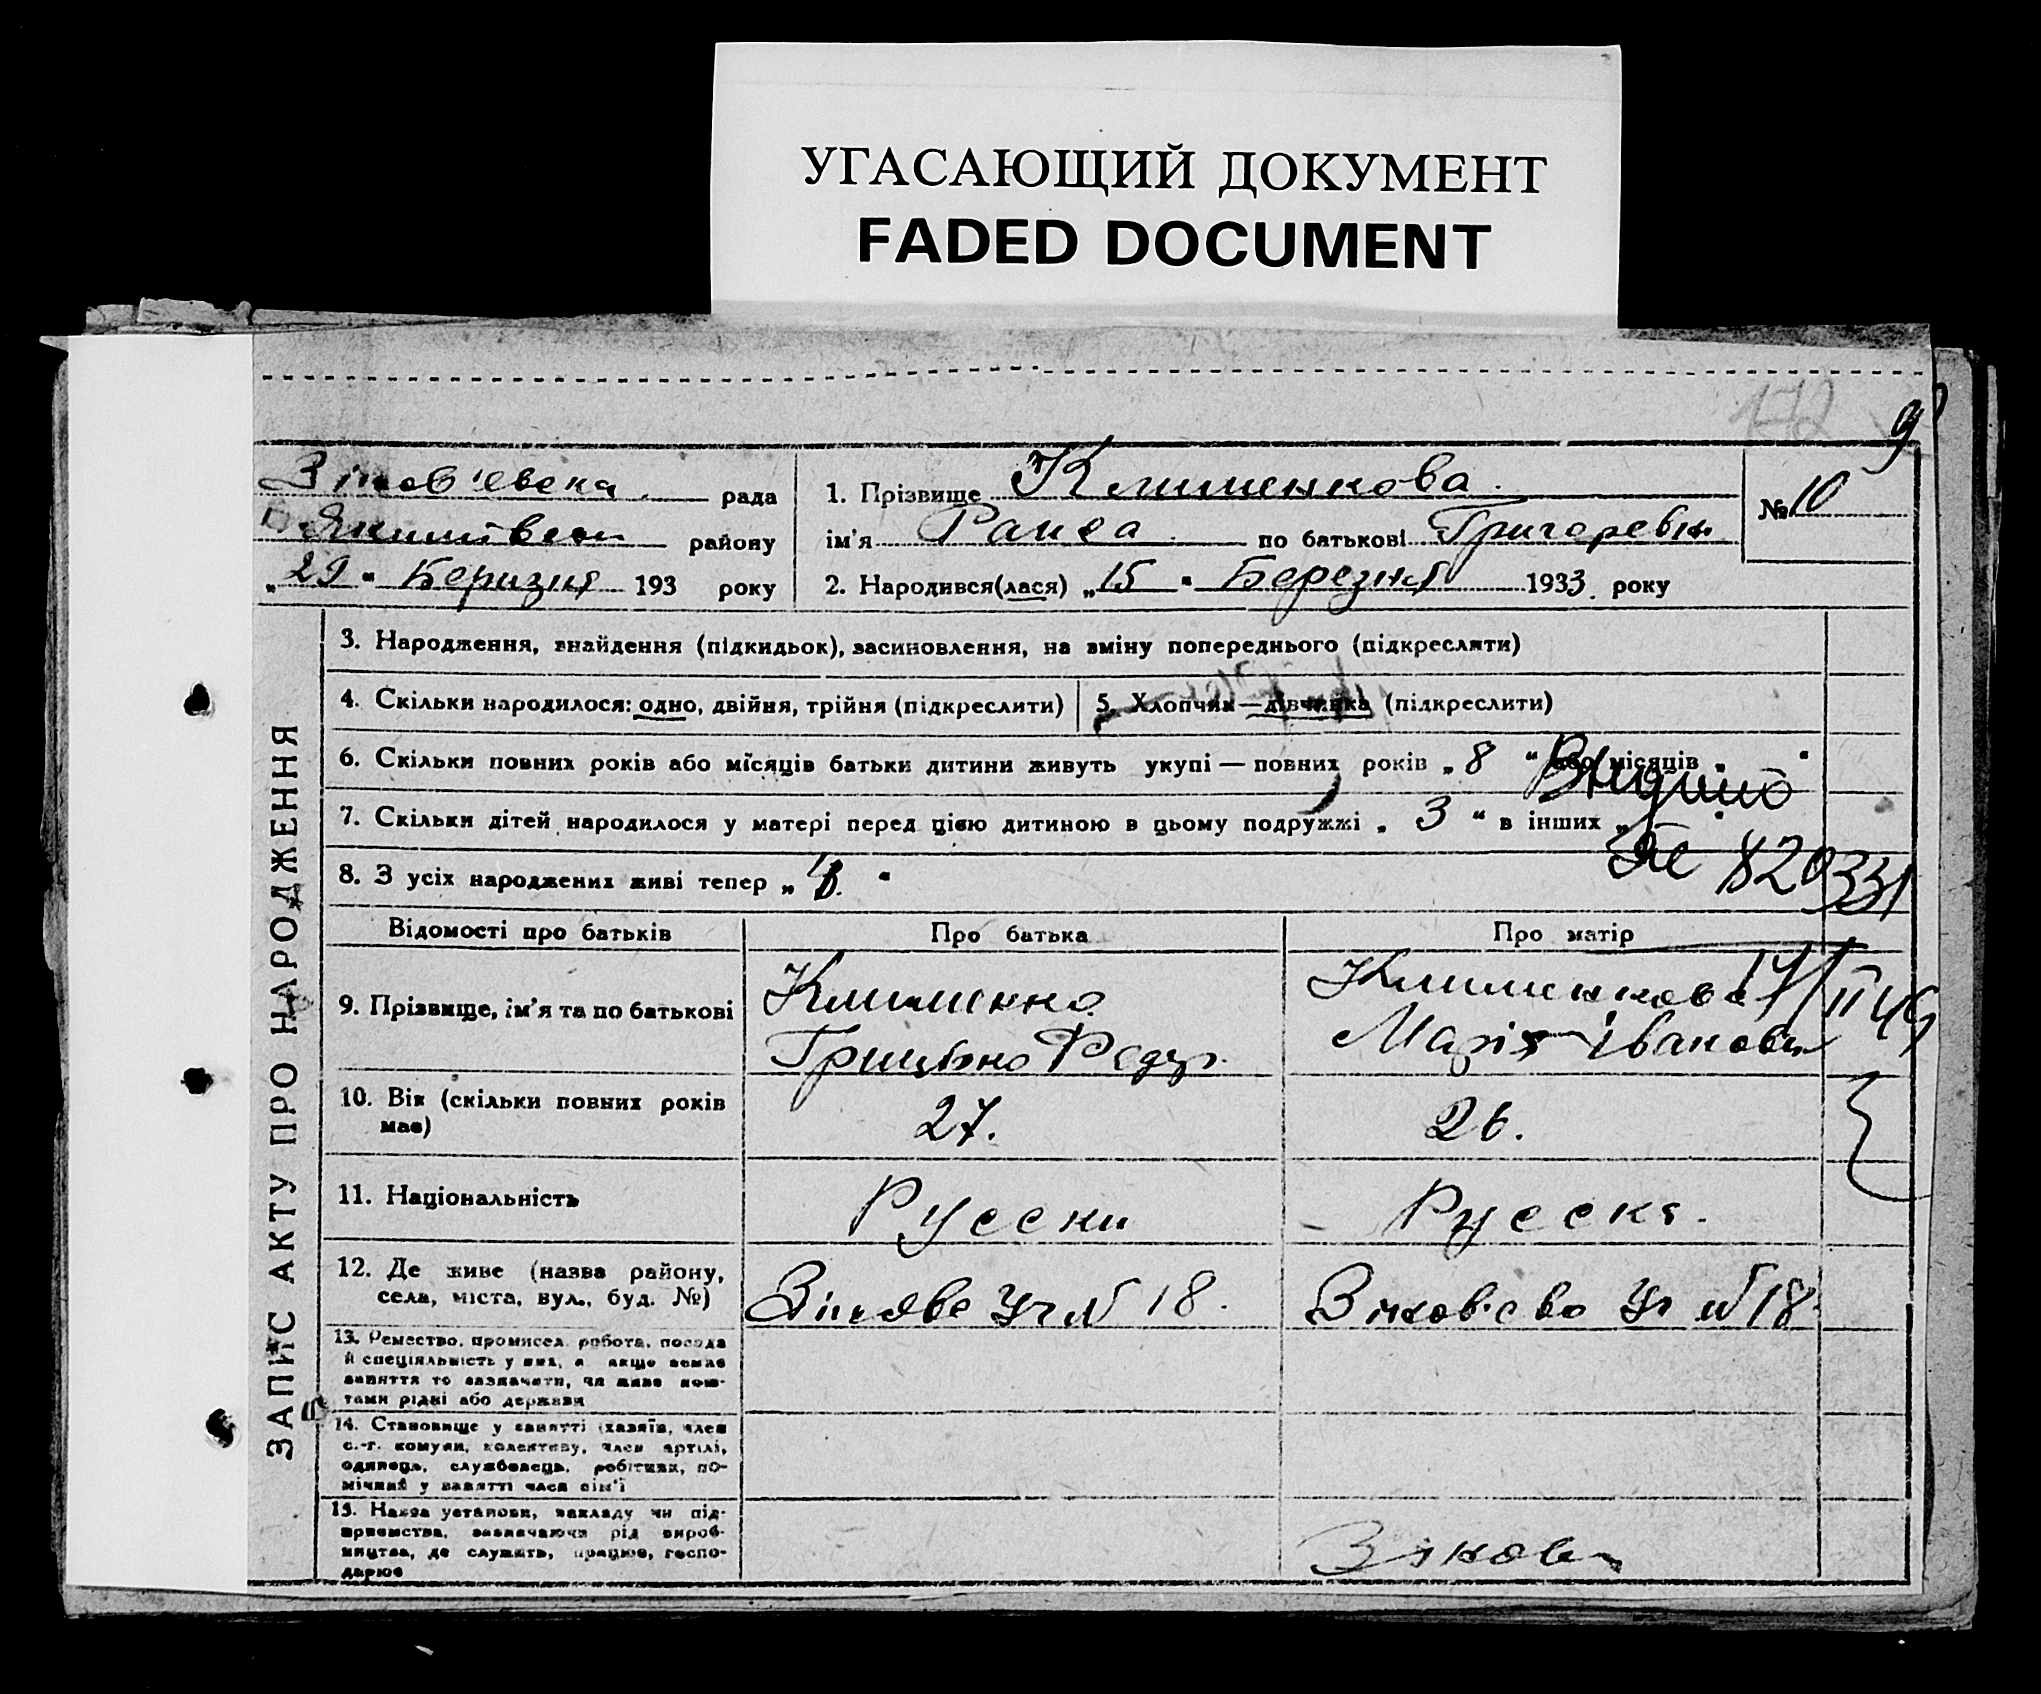 УГАСАЮЩИЙ ДОКУМЕНТ
FADED DOCUMENT
172
9
Зінов'євска рада
району
„29“ Беризня 193 року
1. Прізвище Клименкова.
ім'я Раиса по батькові Григоревн
2. Народився(лася) „15“ Березня 1933 року
№ 10
ЗАПИС АКТУ ПРО НАРОДЖЕННЯ
3. Народження, знайдення (підкидьок), засиновлення, на зміну попереднього (підкреслити)
4. Скільки народилося: одно, двійня, трійня (підкреслити)
5. Хлопчик—дівчинка (підкреслити)
6. Скільки повних років або місяців батьки дитини живуть укупі — повних років „8“ або місяців „ “
7. Скільки дітей народилося у матері перед цією дитиною в цьому подружжі „3“ в інших „ “
8. З усіх народжених живі тепер „ “
820331
Відомості про батьків
Про батька
Про матір
9. Прізвище, ім'я та по батькові
Клименко
Федор.
Клименкова
Марія Івановн
14/II 49
10. Вік (скільки повних років
має)
27.
26.
11. Національність
Русски
Русска.
12. Де живе (назва району,
села, міста, вул., буд. №)
Уч № 18.
Уч № 18
13. Ремество, промисел, робота, посада
й спеціяльність у них, а якщо немає
заняття то зазначити, чи живе кош-
тами рідні або держави
14. Становище у занятті (хазяїн, член
с.-г. комуни, колективу, член артілі,
одинець, службовець, робітник, по-
мічний у занятті член сім'ї
15. Назва установи, закладу чи під-
приємства, зазначаючи рід вироб-
ництва, де служить, працює, госпо-
дарює